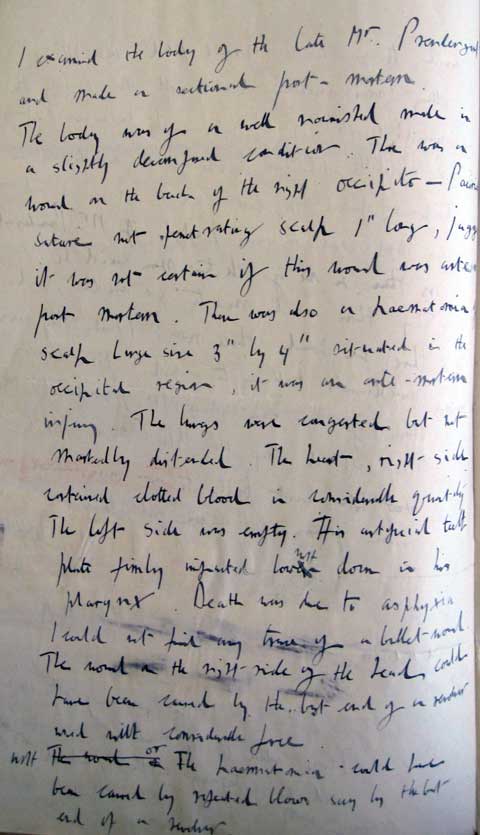 I examined the body of the late Mr. Prendergast
and made a sectional post-mortem
The body was of a well nourished male in
a slightly decomposed condition. There was a
wound on the back of the right occipito-
suture not penetrating scalp 1" long,
it was not certain if this wound was ante
post mortem. There was also a haematoma
scalp large size 3" by 4" situated in the
occipital region, it was an ante-mortem
injury. The lungs were congested but not
markedly distended. The heart, right side
contained clotted blood in considerable quantity
The left side was empty. His artificial teeth
plate firmly impacted low down in his
pharynx. Death was due to asphyxia
I could not find any trace of a bullet-wound.
The wound on the right side of the head could
have been caused by the butt end of a revolver
used with considerable force.
The wound or The haematoma could have
been caused by repeated blows say by the butt
end of a revolver